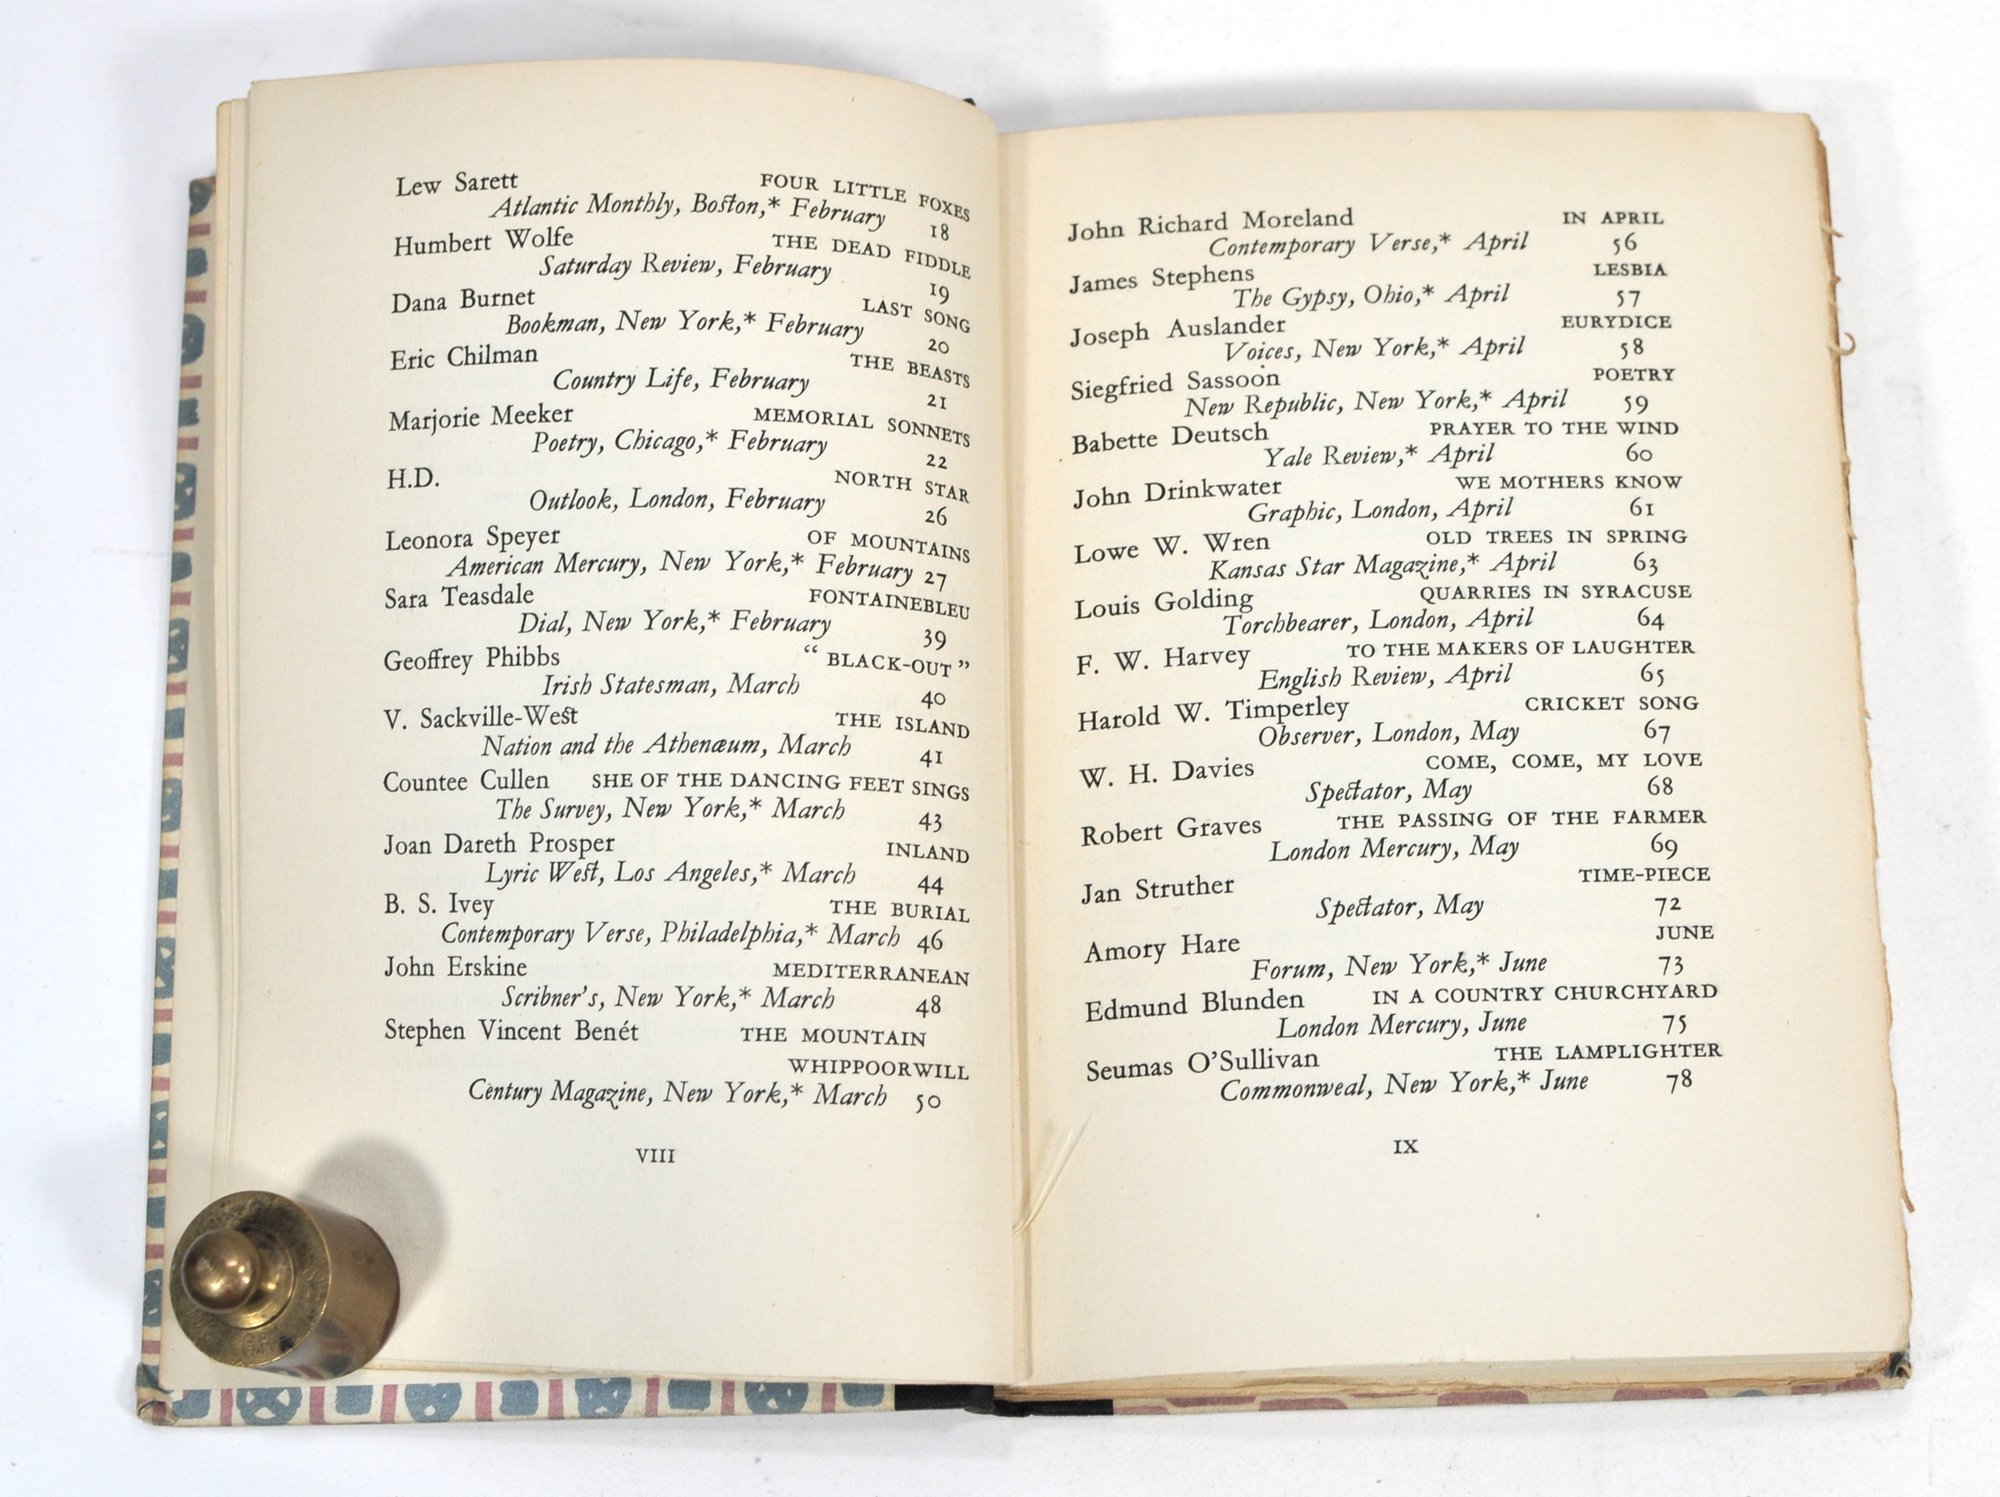 Lew Sarett FOUR LITTLE FOXES
Atlantic Monthly, Boston,* February 18
Humbert Wolfe THE DEAD FIDDLE
Saturday Review, February 19
Dana Burnet LAST SONG
Bookman, New York,* February 20
Eric Chilman THE BEASTS
Country Life, February 21
Marjorie Meeker MEMORIAL SONNETS
Poetry, Chicago,* February 22
H.D. NORTH STAR
Outlook, London, February 26
Leonora Speyer OF MOUNTAINS
American Mercury, New York,* February 27
Sara Teasdale FONTAINEBLEU
Dial, New York,* February 39
Geoffrey Phibbs “ BLACK-OUT ”
Irish Statesman, March 40
V. Sackville-West THE ISLAND
Nation and the Athenæum, March 41
Countee Cullen SHE OF THE DANCING FEET SINGS
The Survey, New York,* March 43
Joan Dareth Prosper INLAND
Lyric West, Los Angeles,* March 44
B. S. Ivey THE BURIAL
Contemporary Verse, Philadelphia,* March 46
John Erskine MEDITERRANEAN
Scribner's, New York,* March 48
Stephen Vincent Benét THE MOUNTAIN
WHIPPOORWILL
Century Magazine, New York,* March 50
VIII
John Richard Moreland IN APRIL
Contemporary Verse,* April 56
James Stephens LESBIA
The Gypsy, Ohio,* April 57
Joseph Auslander EURYDICE
Voices, New York,* April 58
Siegfried Sassoon POETRY
New Republic, New York,* April 59
Babette Deutsch PRAYER TO THE WIND
Yale Review,* April 60
John Drinkwater WE MOTHERS KNOW
Graphic, London, April 61
Lowe W. Wren OLD TREES IN SPRING
Kansas Star Magazine,* April 63
Louis Golding QUARRIES IN SYRACUSE
Torchbearer, London, April 64
F. W. Harvey TO THE MAKERS OF LAUGHTER
English Review, April 65
Harold W. Timperley CRICKET SONG
Observer, London, May 67
W. H. Davies COME, COME, MY LOVE
Spectator, May 68
Robert Graves THE PASSING OF THE FARMER
London Mercury, May 69
Jan Struther TIME-PIECE
Spectator, May 72
Amory Hare JUNE
Forum, New York,* June 73
Edmund Blunden IN A COUNTRY CHURCHYARD
London Mercury, June 75
Seumas O'Sullivan THE LAMPLIGHTER
Commonweal, New York,* June 78
IX